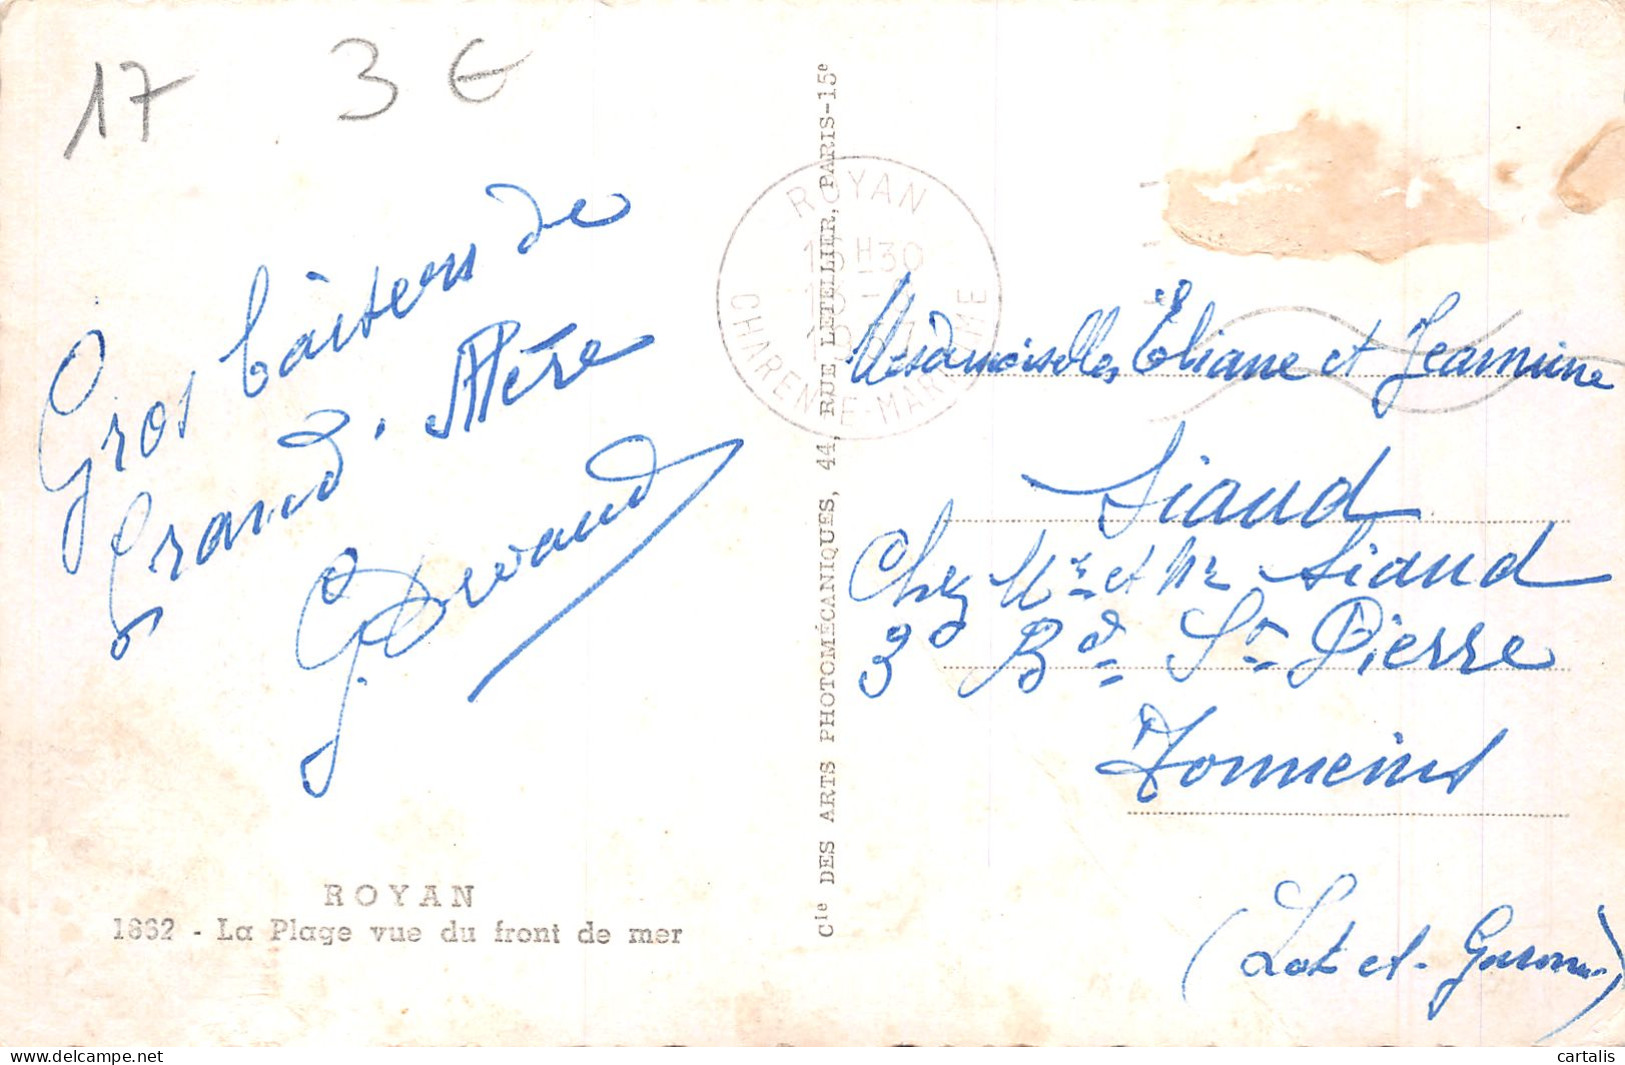 17 3 €
Gros baisers de
Grand. Mère
ROYAN
1862 - La Plage vue du front de mer
Cie DES ARTS PHOTOMÉCANIQUES, 44, RUE LETELLIER, PARIS-15e
ROYAN
CHARENTE-MARITIME
Mesdemoiselles Eliane et Jeannine
Siaud
Chez Mr et Me Siaud
Bd St Pierre
Tonneins
(Lot et-Garonne)
cartalis